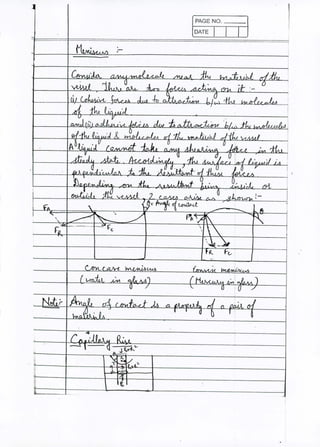 PAGE NO.
DATE
Meniscus :-
Consider any molecule near the material of the
vessel. There are two forces acting on it :-
(i) Cohesive forces due to attraction b/w the molecules
of the liquid
and (ii) adhesive forces due to attraction b/w the molecules
of the liquid & molecules of the material of the vessel
A liquid cannot take any shearing force in the
steady state. Accordingly, the surface of liquid is
perpendicular to the resultant of these forces
Depending on the resultant being inside or
outside the vessel, 2 cases arise as shown:-
θ = Angle of contact
FA FR FC
FA θ FR FC
concave meniscus convex meniscus
(water in glass) (Mercury in glass)
Note:- Angle of contact is a property of a pair of
materials.
Capillary Rise